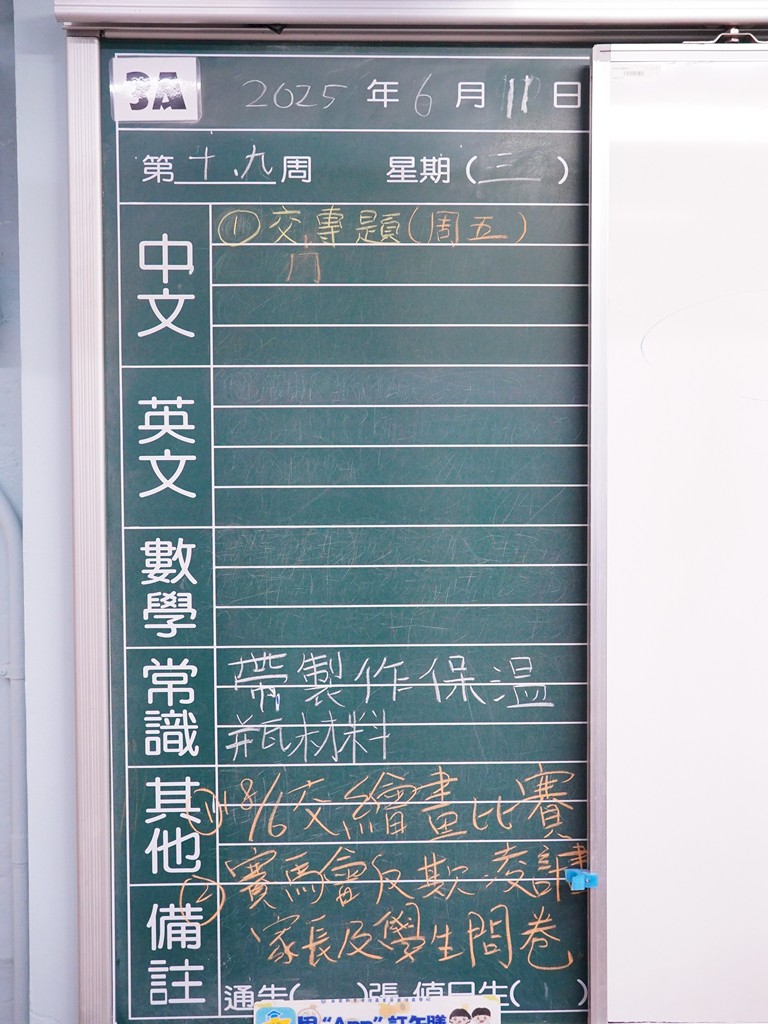 3A
2025年6月11日
第十九周 星期(三)
中文
①交專題(周五)
內
英文
數學
常識
帶製作保溫
瓶材料
其他
① 18/6交繪畫比賽
② 賽馬會反欺凌計
備註
家長及學生問卷
通告( )張 值日生( )
用"App"訂午膳